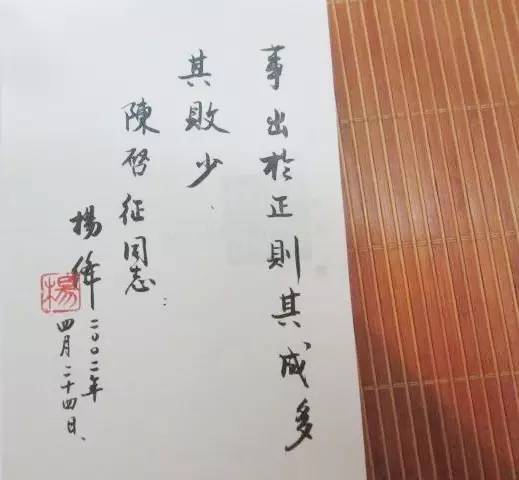 事出於正則其成多
其敗少、
陳啓征同志:
楊偉
楊
二〇〇二年
四月二十四日、